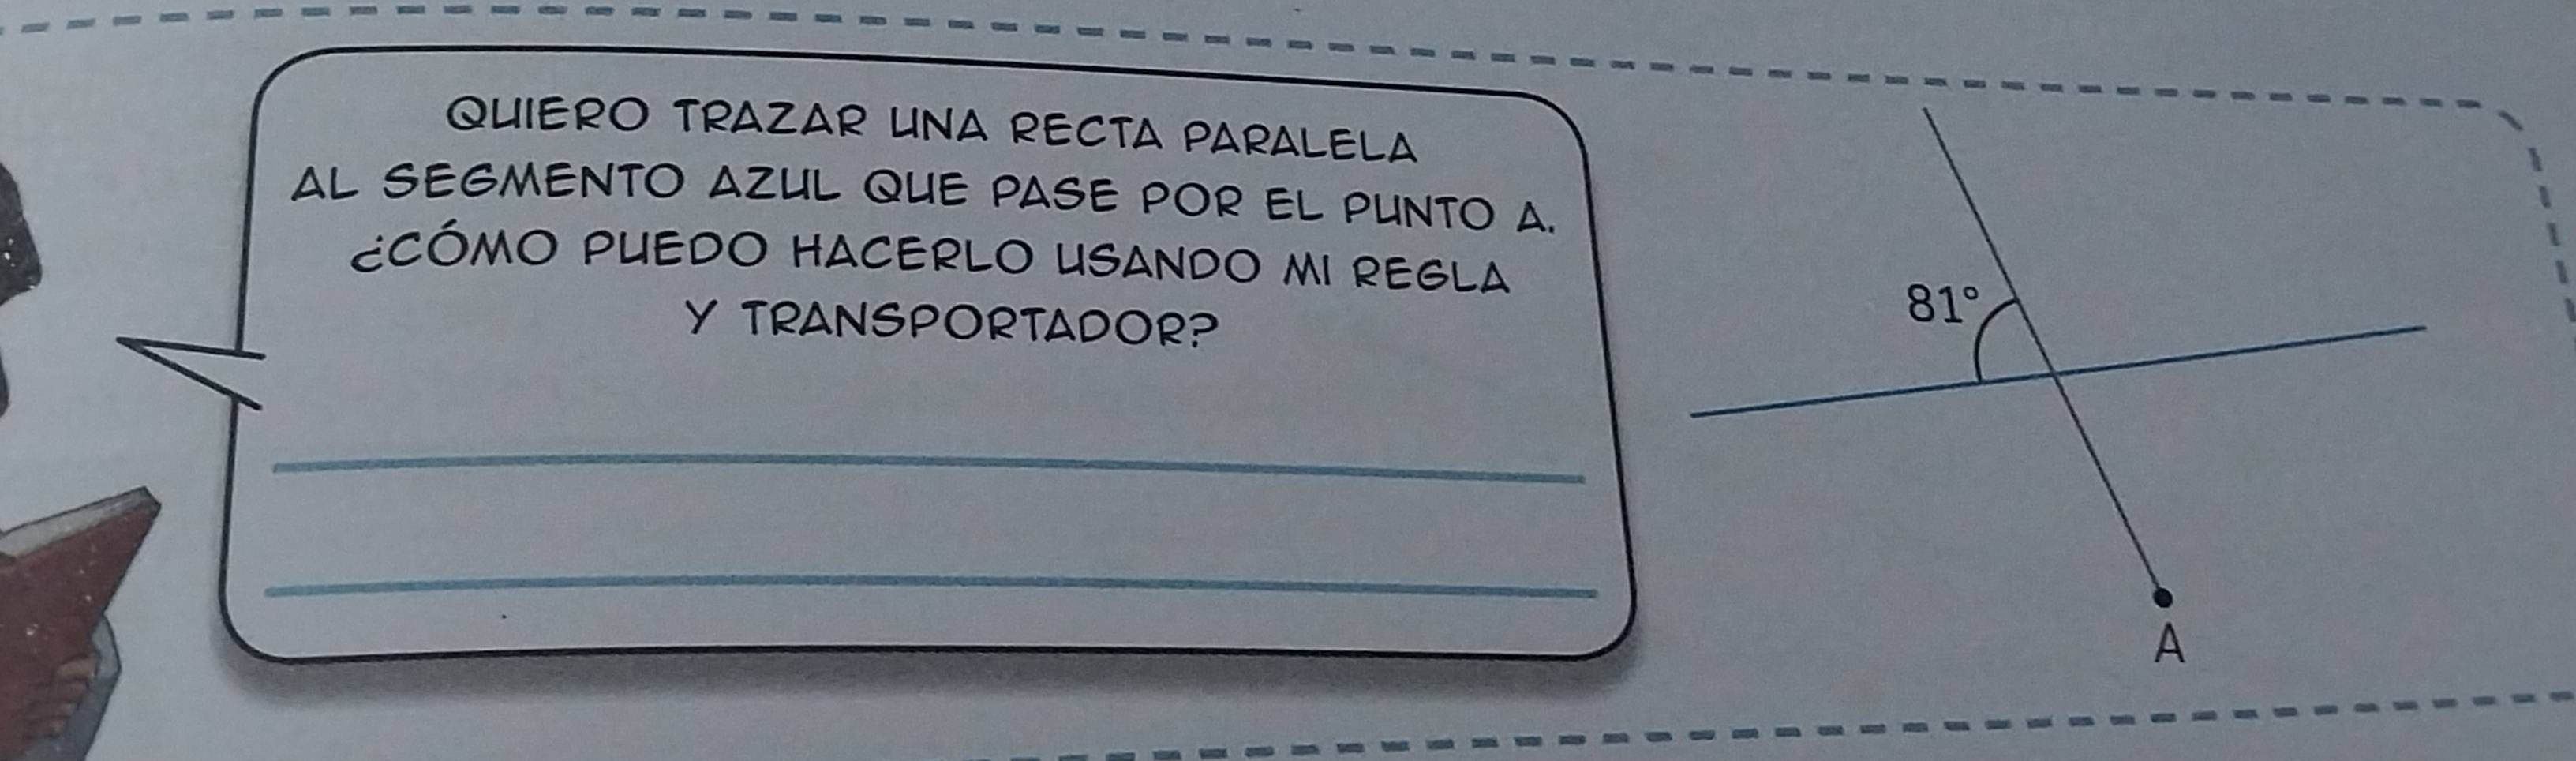 QUIERO TRAZAR UNA RECTA PARALELA
AL SEGMENTO AZUL QUE PASE POR EL PUNTO A.
¿CÓMO PUEDO HACERLO USANDO MI REGLA
Y TRANSPORTADOR?
81°
A